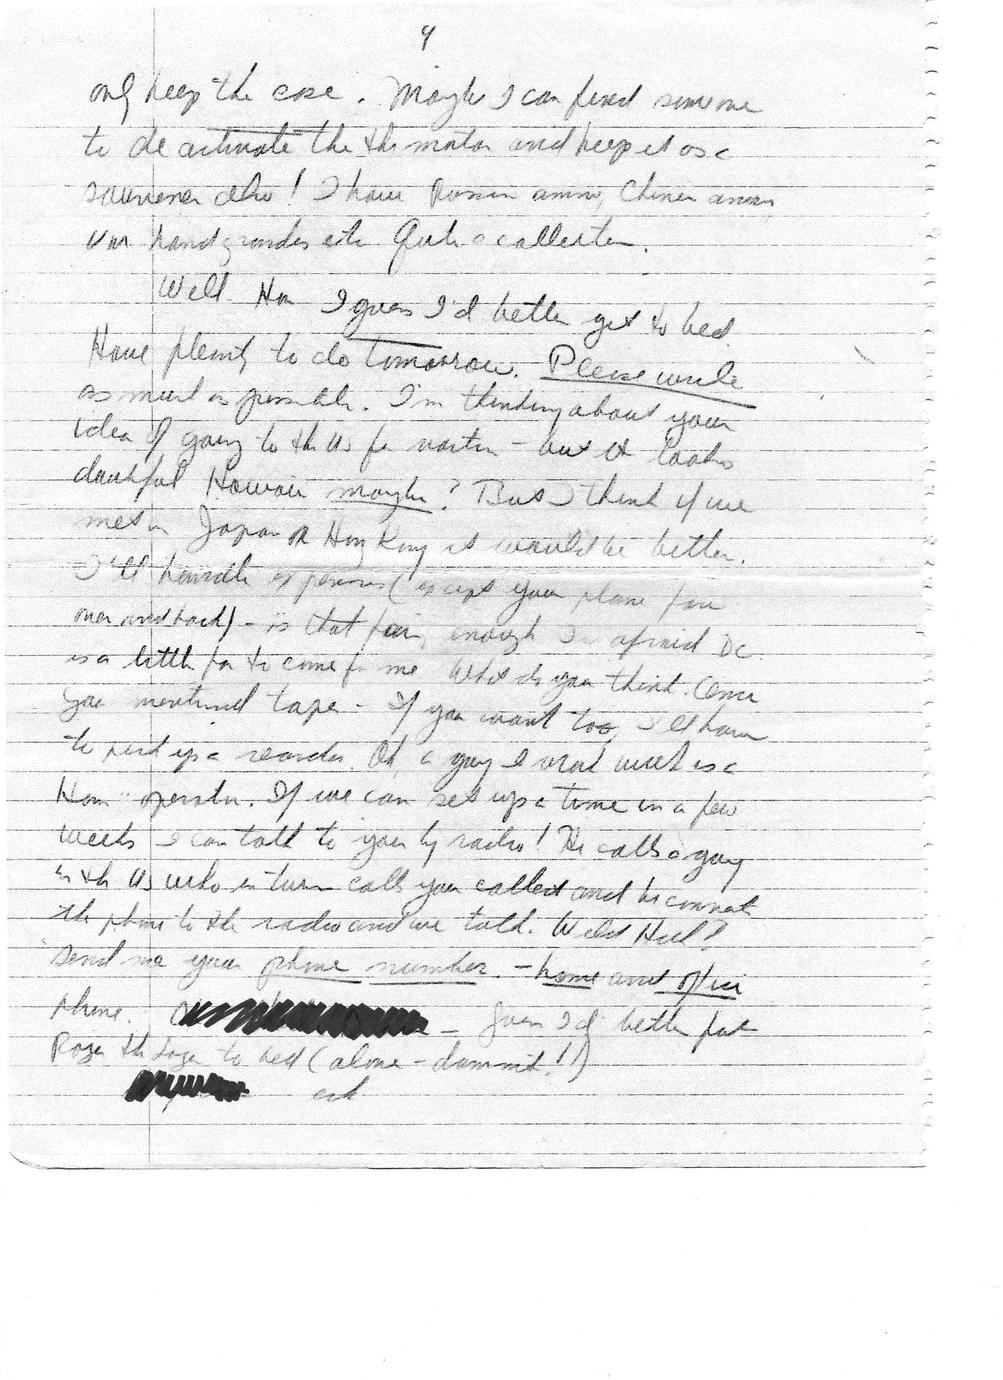 4
only keep the case. Maybe I can find someone
to deactivate the the motor and keep it as a
souvenir also! I have Russian ammo, Chinese ammo,
hand grenades etc. Quite a collection.
Well Hon I guess I'd better get to bed.
Have plenty to do tomorrow. Please write
as much as possible. I'm thinking about your
idea of going to the US for - but it looks
doubtful Hawaii maybe? But I think if we
met in Japan or Hong Kong it would be better.
I'll handle expenses (except your plane fare
over and back) - is that fair enough I'm afraid DC
is a little far to come for me What do you think. Once
you mentioned tape - If you want too, I'll have
to pick up a recorder. Oh, a guy I work with is a
Ham operator. If we can set up a time in a few
weeks I can talk to you by radio! He calls a guy
in the US who in turn calls you collect and he connects
the phone to the radio and we talk. What
Send me your phone number. - home and office
phone. - Guess I'd better put
to bed (alone - dammit!!)